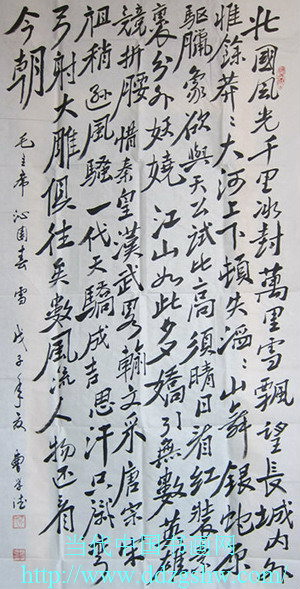 北國風光千里冰封萬里雪飄望長城內外
惟餘莽〻大河上下頓失滔〻山舞銀蛇原
驅臘象欲與天公試比高須晴日看紅裝素
裹分外妖嬈 江山如此多嬌引無數英雄
競折腰惜秦皇漢武略輸文采唐宗宋
祖稍遜風騷一代天驕成吉思汗只識彎
弓射大雕俱往矣數風流人物還看
今朝
毛主席沁園春雪 戊子年夏
当代中国书画网
http://www.ddzgshw.com/